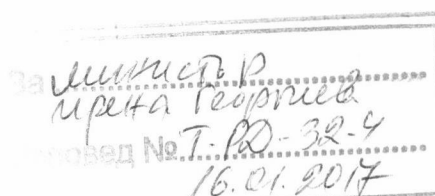 За министър
Ирена Георгиева
Заповед № Т-РД-32-4
16.01.2017